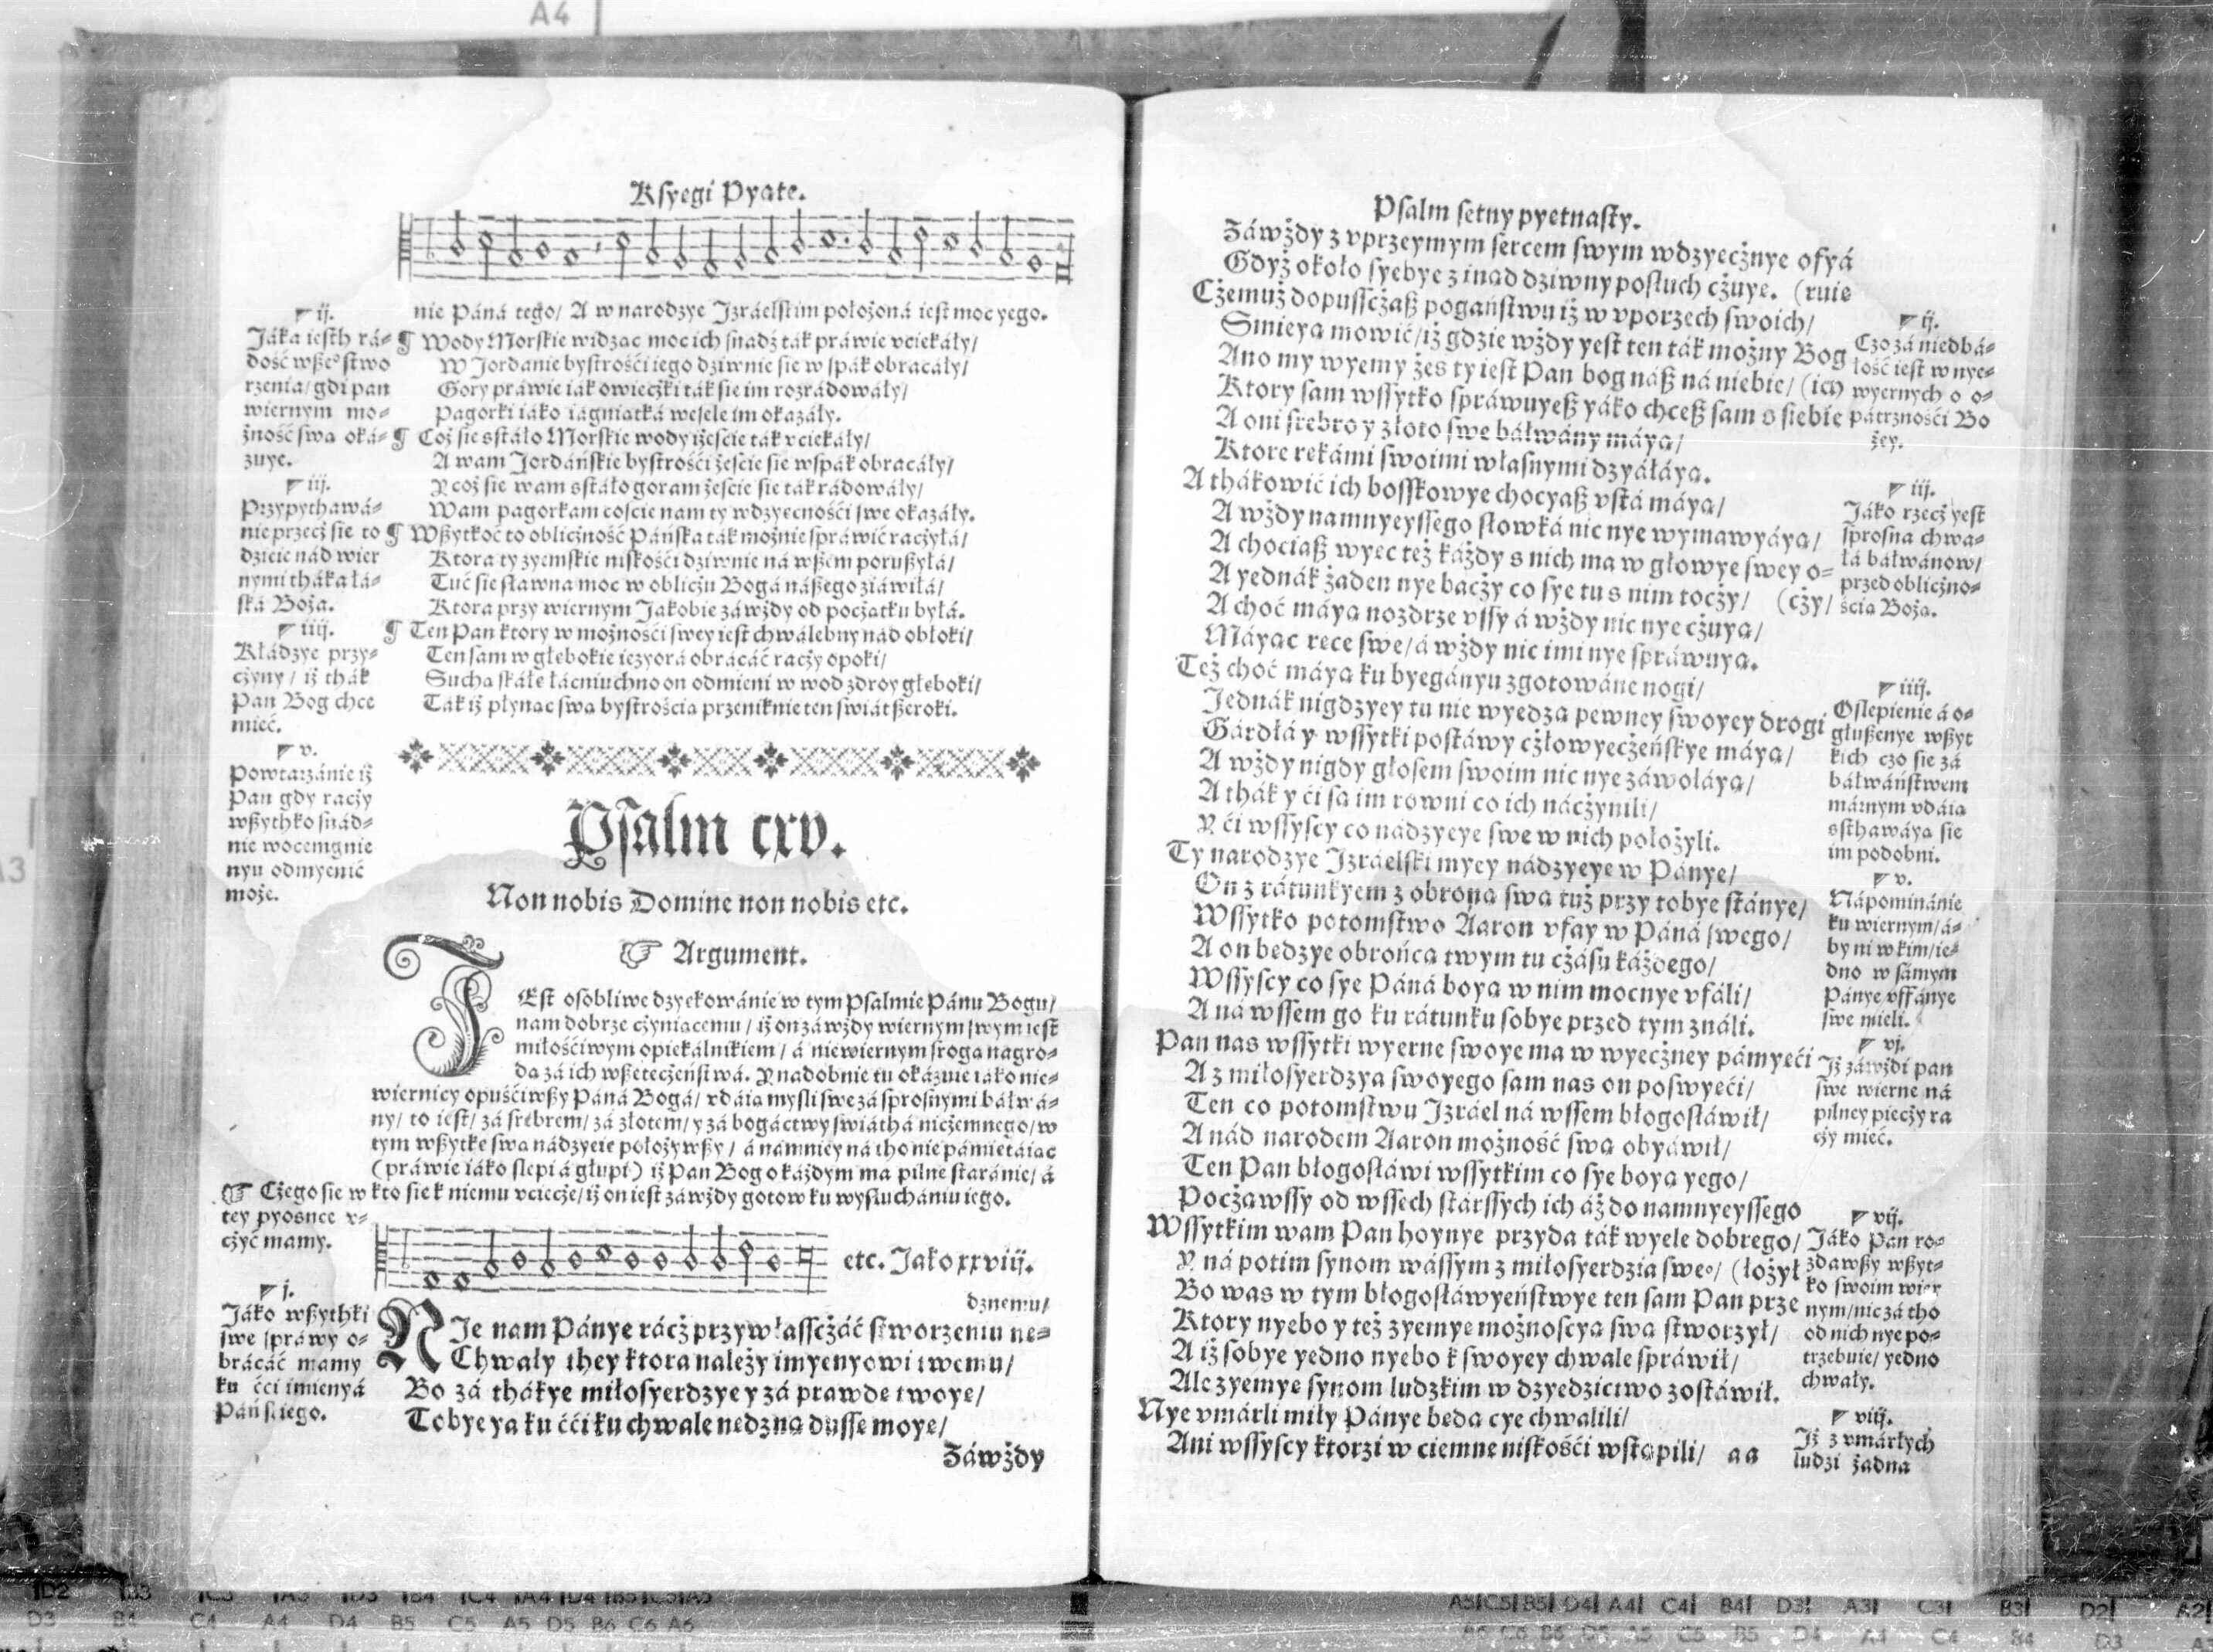 A4
Ksyegi Pyate.
nie Páná tego/ A w narodzye Jzráelskim położoná iest moc yego.
¶ Wody Morskie widzac moc ich snadź ták práwie vciekáły/
W Jordanie bystrośći iego dziwnie sie w spák obracáły/
Gory práwie iák owieczki ták sie im rozrádowáły/
Pagorki iáko iagniatká wesele im okazáły.
¶ Coż sie sstáło Morskie wody iżeście ták vciekáły/
A wam Jordáńskie bystrośći żeście sie wspák obracáły/
Y coż sie wam sstáło goram żeście sie ták rádowáły/
Wam pagorkam coście nam ty wdzyecnośći swe okazáły.
¶ Wßytkoć to obliczność Páńska ták możnie spráwić raczyłá/
Ktora ty zyemskie niskośći dziwnie ná wßem porußyłá/
Tuć sie sławna moc w obliczu Bogá náßego ziáwiłá/
Ktora przy wiernym Jakobie záwżdy od początku byłá.
¶ Ten Pan ktory w możnośći swey iest chwálebny nád obłoki/
Ten sam w głebokie iezyorá obrácáć raczy opoki/
Sucha skáłe łácniuchno on odmieni w wod zdroy głeboki/
Ták iż płynac swa bystrościa przeniknie ten świát ßeroki.
ij.
Jáka iesth rá-
dość wßeo stwo
rzenia/ gdi pan
wiernym mo-
żność swa oká-
zuye.
iij.
Przypythawá-
nie przecż sie to
dzieie nád wier
nymi tháka łá-
ská Boża.
iiij.
Kłádzye przy-
cżyny/ iż thák
Pan Bog chce
mieć.
v.
Powtarzánie iż
Pan gdy raczy
wßythko snád-
nie wocemgnie
nyu odmyenić
może.
Psalm cxv.
Non nobis Domine non nobis etc.
Argument.
JEst osobliwe dzyekowánie w tym Psalmie Pánu Bogu/
nam dobrze cżyniacemu/ iż on záwżdy wiernym swym iest
miłośćiwym opiekálnikiem/ á niewiernym sroga nagro-
da zá ich wßetecżeństwá. Y nadobnie tu okázuie iako nie-
wiernicy opuśćiwßy Páná Bogá/ vdáia myśli swe zá sprosnymi báłwá-
ny/ to iest/ zá srebrem/ zá złotem/ y zá bogáctwy świáthá nieżemnego/ w
tym wßytke swa nádzyeie położywßy/ á namniey ná tho nie pámietáiac
(práwie iáko slepi á głupi) iż Pan Bog o káżdym ma pilne stáránie/ á
kto sie k niemu vcieże/ iż on iest záwżdy gotow ku wysłuchániu iego.
Cżego sie w
tey pyosnce v-
cżyć mamy.
etc. Jako xxviij.
j.
Jáko wßythki
swe spráwy o-
brácáć mamy
ku ćci imienyá
Páńskiego.
dznemu/
NJe nam Pánye rácż przywłasscżáć stworzeniu ne-
Chwały they ktora należy imyenyowi twemu/
Bo zá thákye miłosyerdzye y zá prawde twoye/
Tobye ya ku ćći ku chwale nedzna dusse moye/
Záwżdy
Psalm setny pyetnasty.
Záwżdy z vprzeymym sercem swym wdzyecżnye ofyá
Gdyż około syebye z inad dziwny posłuch cżuye. (ruie
Cżemuż dopusscżaß pogaństwu iż w vporzech swoich/
Smieya mowić/ iż gdzie wżdy yest ten ták możny Bog
Ano my wyemy żes ty iest Pan bog náß ná niebie/ (ich
Ktory sam wssytko spráwuyeß yáko chceß sam s siebie
A oni srebro y złoto swe báłwány máya/
Ktore rekámi swoimi własnymi dzyáłáya.
A thákowić ich bosskowye chocyaß vstá máya/
A wżdy namnyeyssego słowká nic nye wymawyáya/
A chociaß wyec też káżdy s nich ma w głowye swey o-
A yednák żaden nye bacży co sye tu s nim tocży/ (cży/
A choć máya nozdrze vssy á wżdy nic nye cżuya/
Máyac rece swe/ á wżdy nic imi nye spráwuya.
Też choć máya ku byegányu zgotowáne nogi/
Jednák nigdzyey tu nie wyedza pewney swoyey drogi
Gárdłá y wssytki postáwy cżłowyecżeńskye máya/
A wżdy nigdy głosem swoim nic nye záwołáya/
A thák y ći sa im rowni co ich nácżynili/
Y ći wssyscy co nádzyeye swe w nich położyli.
Ty narodzye Jzráelski myey nádzyeye w Pánye/
On z rátunkyem z obrona swa tuż przy tobye stánye/
Wssytko potomstwo Aaron vfay w Páná swego/
A on bedzye obrońca twym tu cżásu káżdego/
Wssyscy co sye Páná boya w nim mocnye vfáli/
A ná wssem go ku rátunku sobye przed tym ználi.
Pan nas wssytki wyerne swoye ma w wyecżney pámyeći
A z miłosyerdzya swoyego sam nas on poswyeći/
Ten co potomstwu Jzráel ná wssem błogosłáwił/
A nád narodem Aaron możność swa obyáwił/
Ten Pan błogosłáwi wssytkim co sye boya yego/
Pocżawssy od wssech stárssych ich áż do namnyeyssego
Wssytkim wam Pan hoynye przyda ták wyele dobrego/
Y ná potim synom wássym z miłosyerdzia sweo/ (łożył
Bo was w tym błogosłáwyeństwye ten sam Pan prze
Ktory nyebo y też zyemye możnoscya swa stworzył/
A iż sobye yedno nyebo k swoyey chwale spráwił/
Ale zyemye synom ludzkim w dzyedzictwo zostáwił.
Nye vmárli miły Pánye beda cye chwalili/
Ani wssyscy ktorzi w ciemne niskośći wstapili/ aa
ij.
Czo zá niedbá-
łość iest w nye-
wyernych o o-
pátrznośći Bo
żey.
iij.
Jáko rzecż yest
sprosna chwa-
łá báłwánow/
przed obliczno-
ścia Boża.
iiij.
Oslepienie á o-
głußenye wßyt
kich czo sie zá
báłwáństwem
márnym vdáia
sthawáya sie
im podobni.
v.
Nápominánie
ku wiernym/ á-
by ni w kim/ ie-
dno w sámym
Pánye vffánye
swe mieli.
vj.
Jż záwżdi pan
swe wierne ná
pilney piecży ra
cży mieć.
vij.
Jáko Pan ro-
zdawßy wßyt-
ko swoim wier
nym/ nic zá tho
od nich nye po-
trzebuie/ yedno
chwały.
viij.
Jż z vmárłych
ludzi żadna